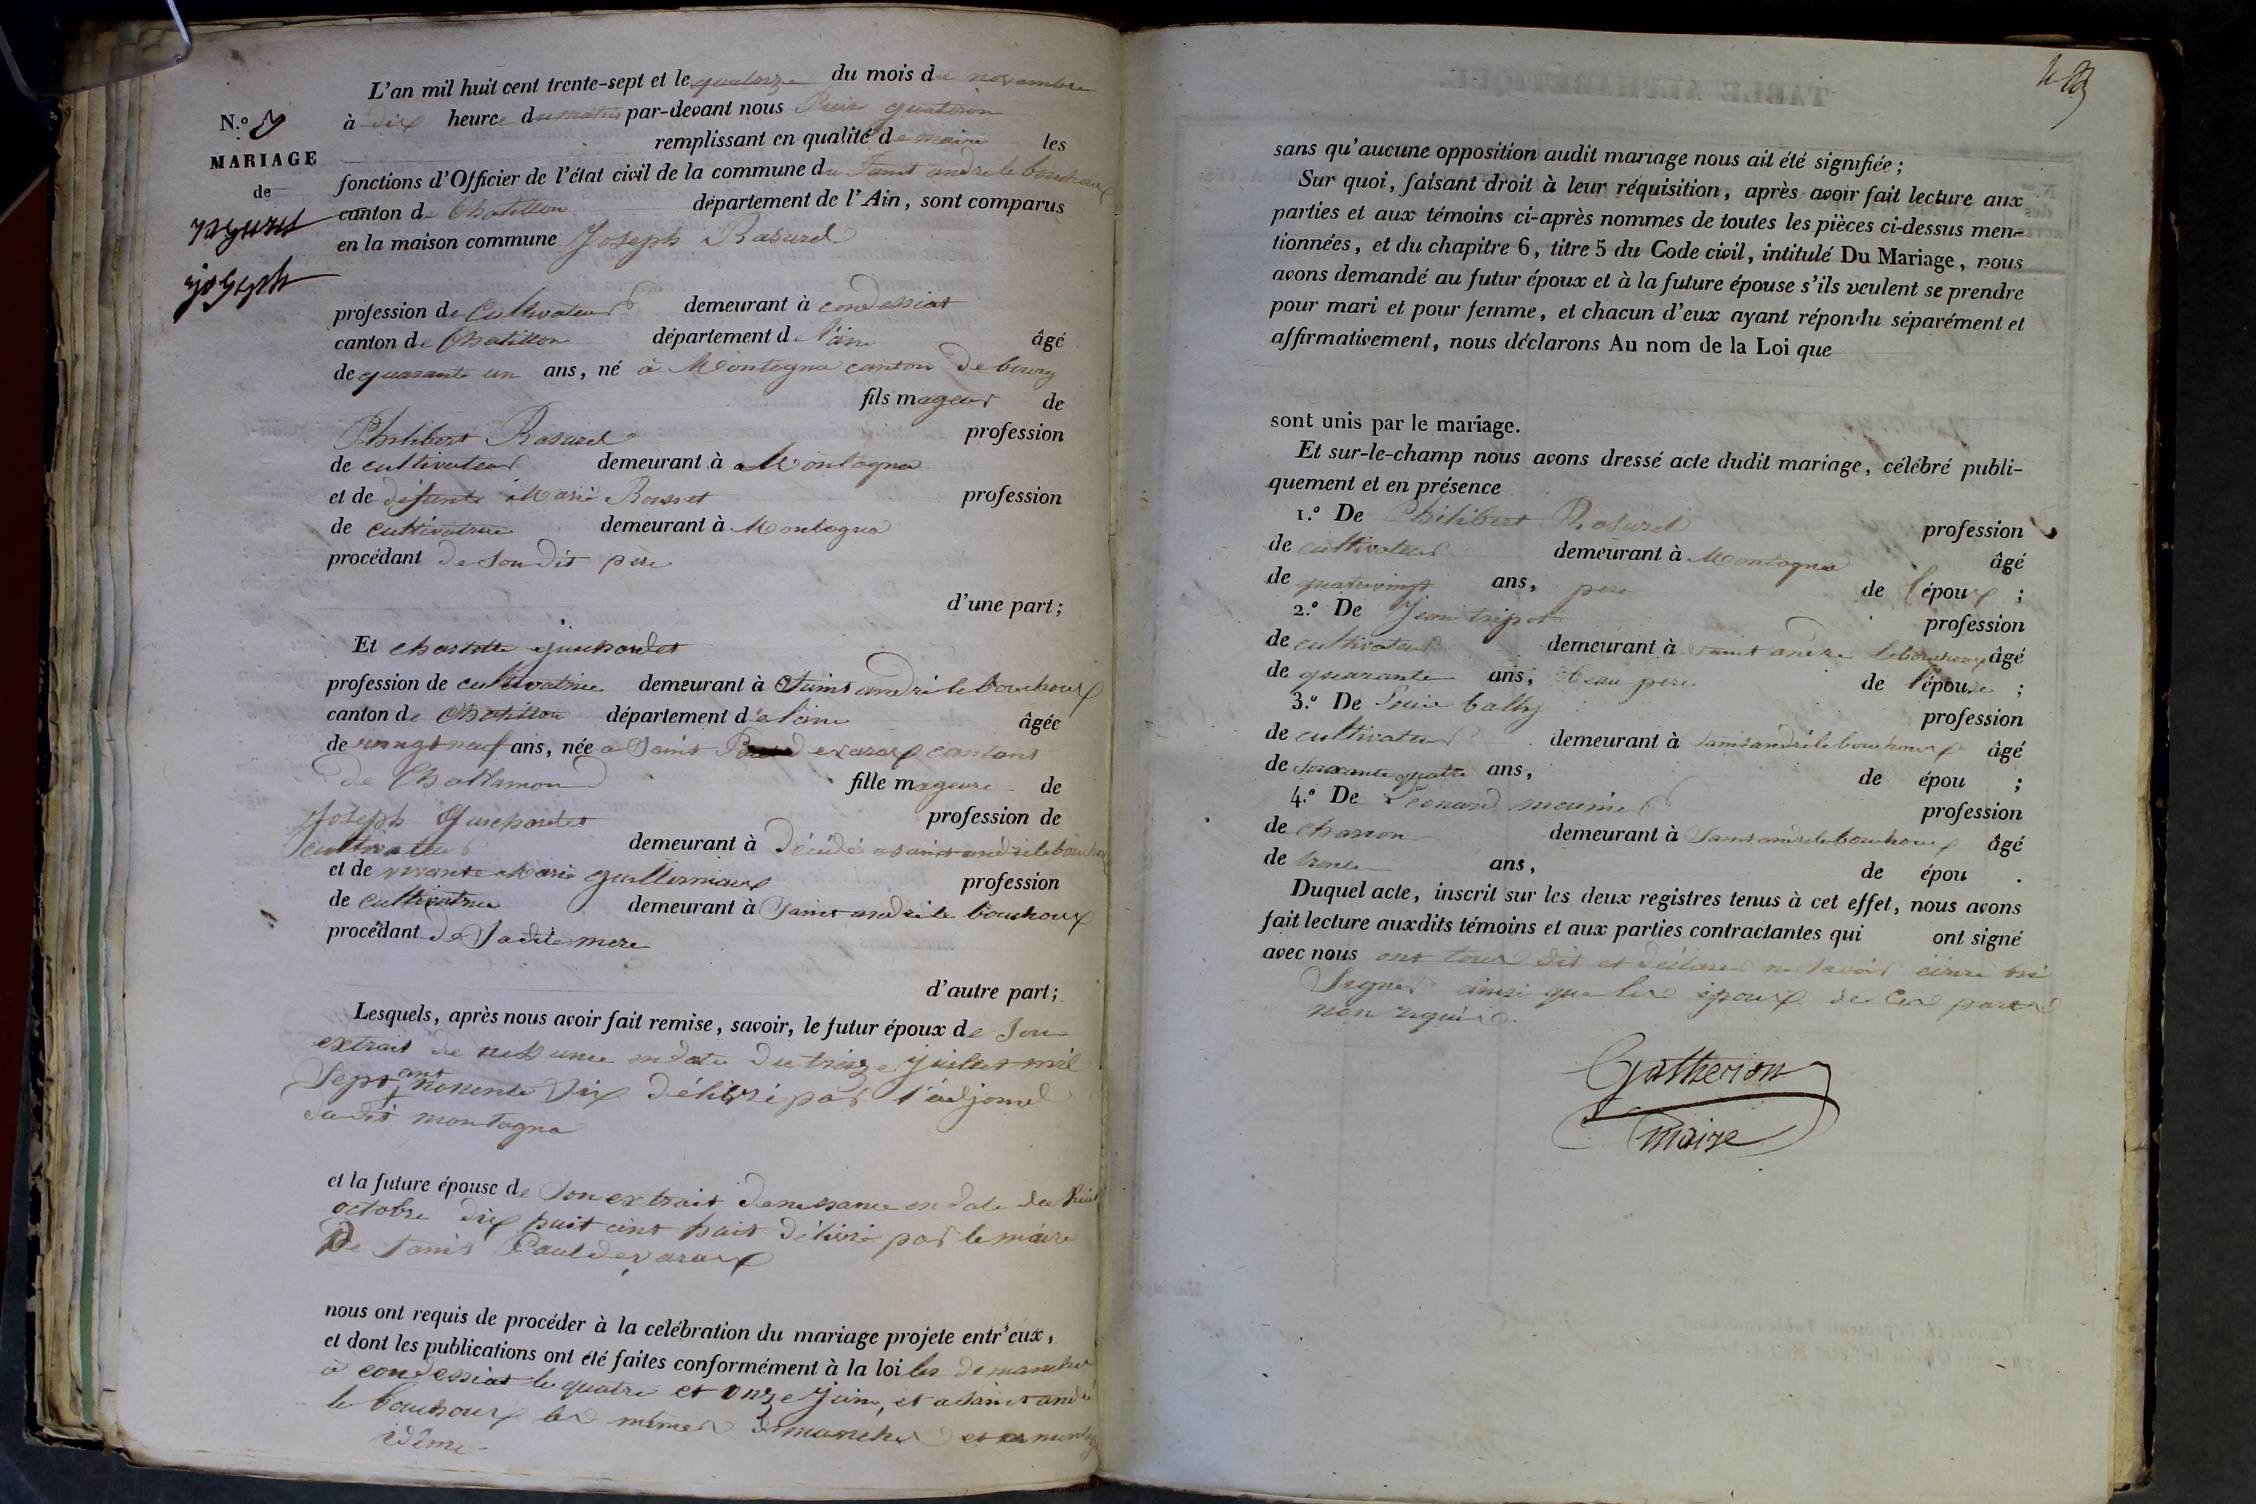 N.º
MARIAGE
de
joseph
L'an mil huit cent trente-sept et le quatorze du mois de novembre
à dix heure du matin par-devant nous
remplissant en qualité de maire les
fonctions d'Officier de l'état civil de la commune du Saint andré le bouchoux
canton de Chatillon département de l'Ain, sont comparus
en la maison commune Joseph Rasurel
profession de Cultivateur demeurant à condessiat
canton de Chatillon département de l'ain âgé
de quarante un ans, né à Montagna canton de bourg
fils mageur de
Philibert Rasurel profession
de cultivateur demeurant à Montagna
et de défunte Marie Rousset profession
de cultivatrice demeurant à Montagna
procédant de son dit père
d'une part;
Et charlotte guichardet
profession de cultivatrice demeurant à Saint andré le bouchoux
canton de Chatillon département de l'ain âgée
de vingt neuf ans, née a Saint devarax cantons
de Chattamon fille mageure de
Joseph Guichardet profession de
cultivateur demeurant à décédé a saint andré le bouchoux
et de vivante Marie guillermaux profession
de cultivatrice demeurant à Saint andré le bouchoux
procédant de Sa dite mere
d'autre part;
Lesquels, après nous avoir fait remise, savoir, le futur époux de Son
extrait de en date du treize Juillet mil
Sept cent nonente Six délivré par l'adjoint
dudit montagna
et la future épouse de Son extrait de nessance en date du huit
octobre dix huit cent huit délivré par le maire
De Saint Paul devarax
nous ont requis de procéder à la célébration du mariage projeté entr'eux,
et dont les publications ont été faites conformément à la loi les demanches
à condessiat le quatre et onze Juin, et a saint andré
le bouchoux les mêmes dimanches et a
idême
sans qu'aucune opposition audit mariage nous ait été signifiée;
Sur quoi, faisant droit à leur réquisition, après avoir fait lecture aux
parties et aux témoins ci-après nommes de toutes les pièces ci-dessus men-
tionnées, et du chapitre 6, titre 5 du Code civil, intitulé Du Mariage, nous
avons demandé au futur époux et à la future épouse s'ils veulent se prendre
pour mari et pour femme, et chacun d'eux ayant répondu séparément et
affirmativement, nous déclarons Au nom de la Loi que
sont unis par le mariage.
Et sur-le-champ nous avons dressé acte dudit mariage, célébré publi-
quement et en présence
1.º De Philibert Rasurel profession
de cultivateur demeurant à Montagna âgé
de quatrevingt ans, pere de l'époux ;
2.º De Jean tripot profession
de cultivateur demeurant à saint andre le bouchoux âgé
de quarante ans, beau pere de l'épouse ;
3.º De Louis profession
de cultivateur demeurant à saint andré le bouchoux âgé
de soixante quatre ans, de épou ;
4.º De Léonard meunier profession
de charron demeurant à Saint andre le bouchoux âgé
de trente ans, de épou .
Duquel acte, inscrit sur les deux registres tenus à cet effet, nous avons
fait lecture auxdits témoins et aux parties contractantes qui ont signé
avec nous ont tous dit et déclarer ne savoir écrire ni
Signer ainsi que les époux de ces parts
non requis.
Gatheron
maire